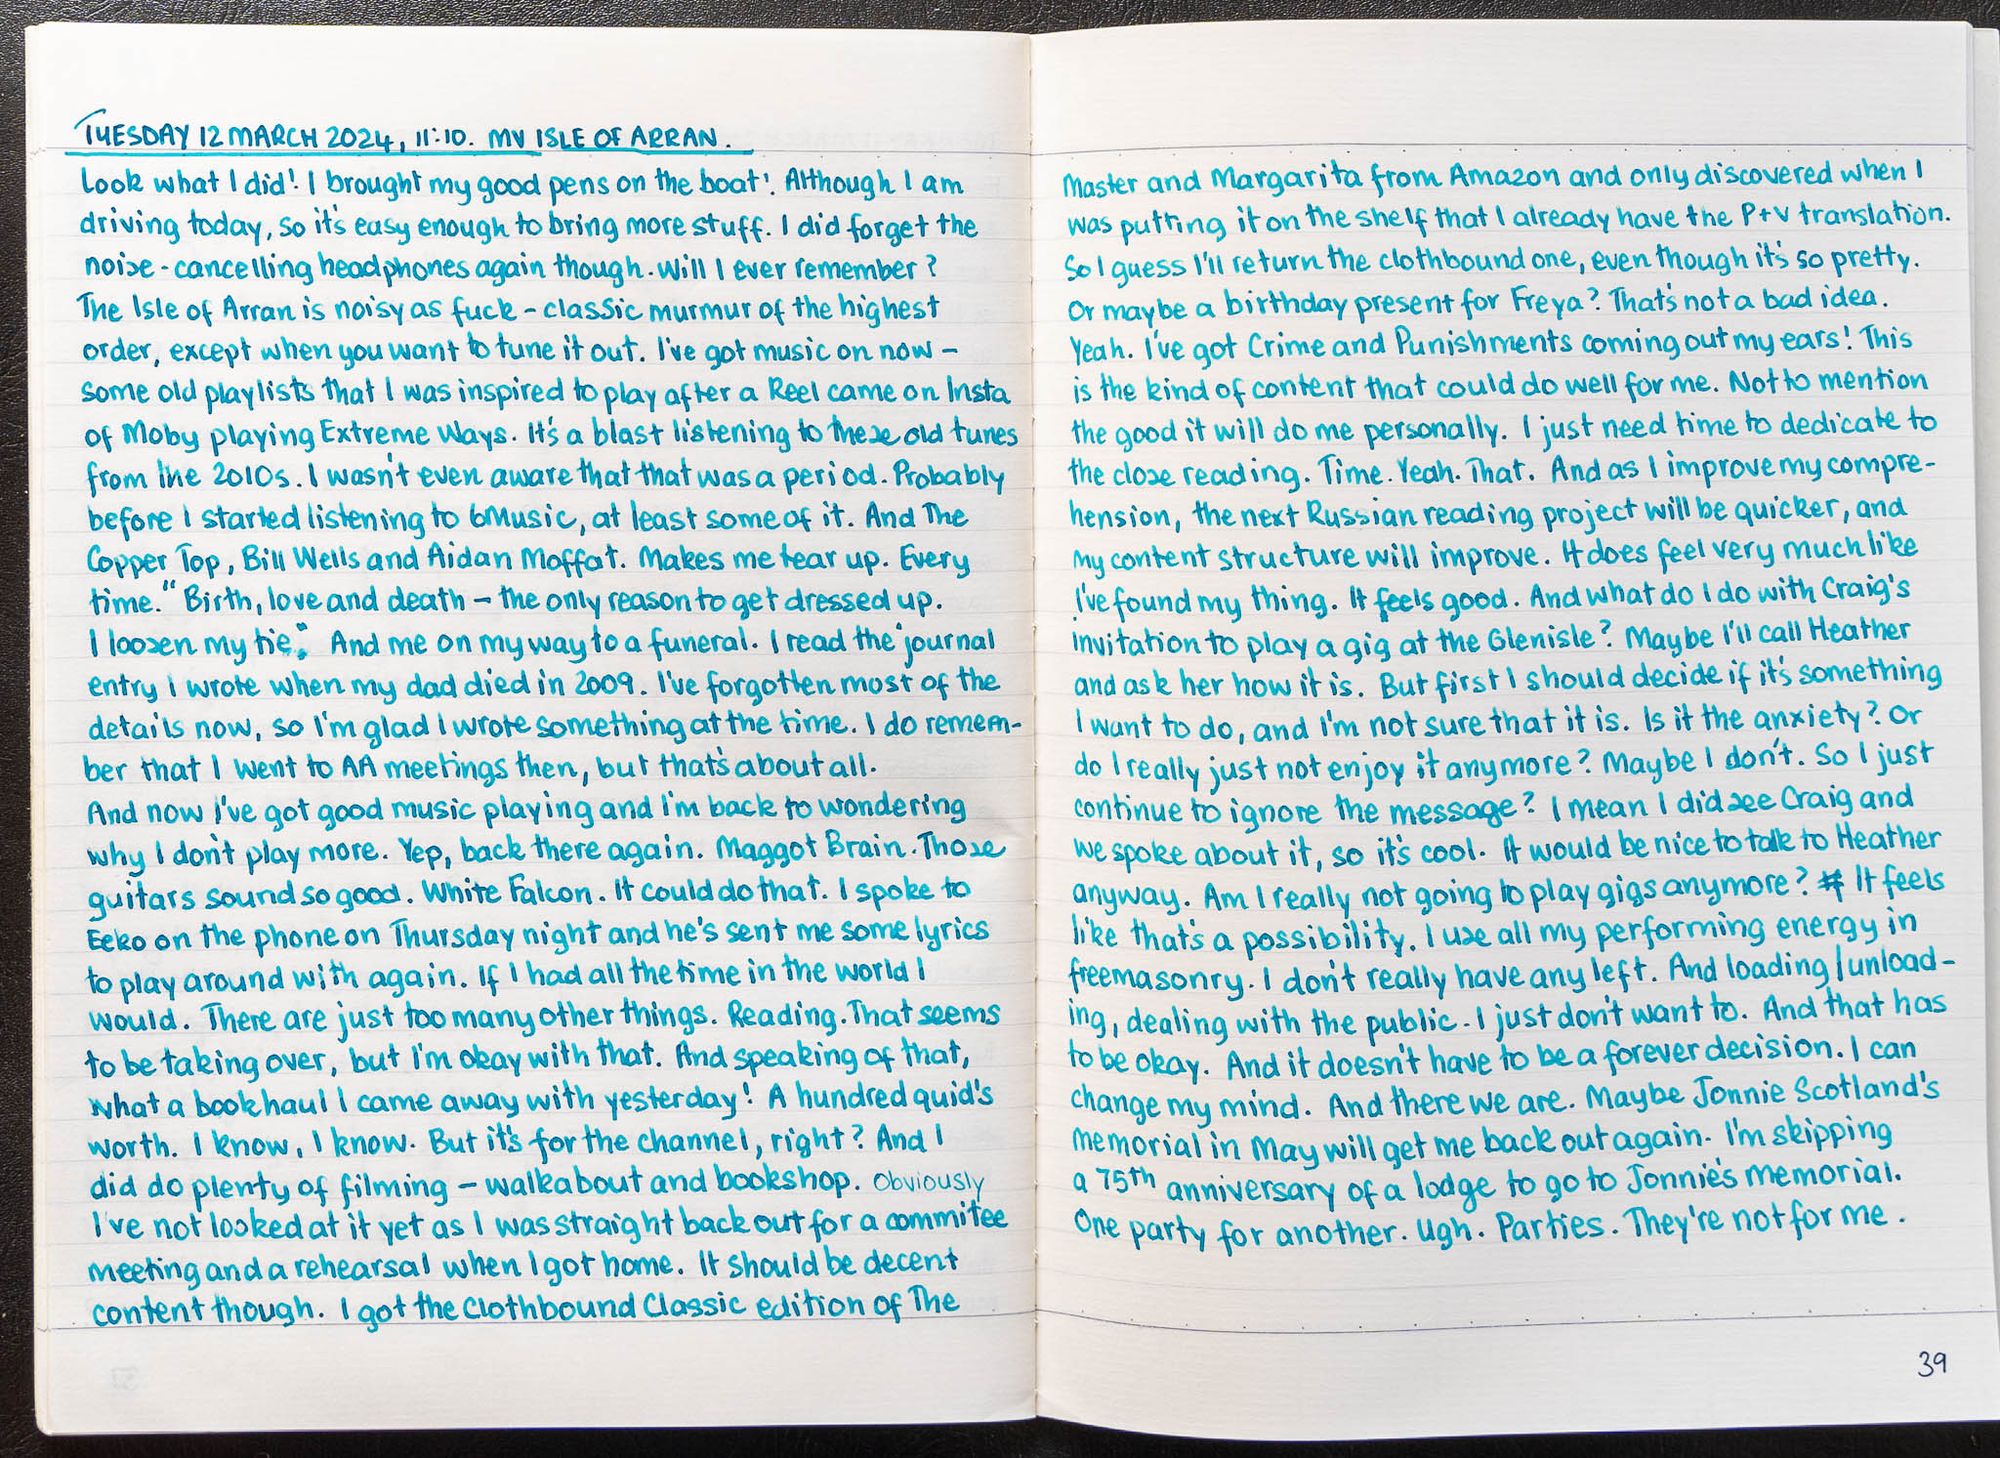 TUESDAY 12 MARCH 2024, 11:10. MV ISLE OF ARRAN.
Look what I did! I brought my good pens on the boat! Although I am
driving today, so it's easy enough to bring more stuff. I did forget the
noise-cancelling headphones again though. Will I ever remember?
The Isle of Arran is noisy as fuck – classic murmur of the highest
order, except when you want to tune it out. I've got music on now –
some old playlists that I was inspired to play after a Reel came on Insta
of Moby playing Extreme Ways. It's a blast listening to these old tunes
from the 2010s. I wasn't even aware that that was a period. Probably
before I started listening to 6Music, at least some of it. And The
Copper Top, Bill Wells and Aidan Moffat. Makes me tear up. Every
time. "Birth, love and death – the only reason to get dressed up.
I loosen my tie." And me on my way to a funeral. I read the journal
entry I wrote when my dad died in 2009. I've forgotten most of the
details now, so I'm glad I wrote something at the time. I do remem-
ber that I went to AA meetings then, but that's about all.
And now I've got good music playing and I'm back to wondering
why I don't play more. Yep, back there again. Maggot Brain. Those
guitars sound so good. White Falcon. It could do that. I spoke to
Eeko on the phone on Thursday night and he's sent me some lyrics
to play around with again. If I had all the time in the world I
would. There are just too many other things. Reading. That seems
to be taking over, but I'm okay with that. And speaking of that,
what a book haul I came away with yesterday! A hundred quid's
worth. I know, I know. But it's for the channel, right? And I
did do plenty of filming – walkabout and bookshop. Obviously
I've not looked at it yet as I was straight back out for a commitee
meeting and a rehearsal when I got home. It should be decent
content though. I got the Clothbound Classic edition of The
Master and Margarita from Amazon and only discovered when I
was putting it on the shelf that I already have the P+V translation.
So I guess I'll return the clothbound one, even though it's so pretty.
Or maybe a birthday present for Freya? That's not a bad idea.
Yeah. I've got Crime and Punishments coming out my ears! This
is the kind of content that could do well for me. Not to mention
the good it will do me personally. I just need time to dedicate to
the close reading. Time. Yeah. That. And as I improve my compre-
hension, the next Russian reading project will be quicker, and
my content structure will improve. It does feel very much like
I've found my thing. It feels good. And what do I do with Craig's
invitation to play a gig at the Glenisle? Maybe I'll call Heather
and ask her how it is. But first I should decide if it's something
I want to do, and I'm not sure that it is. Is it the anxiety? Or
do I really just not enjoy it anymore? Maybe I don't. So I just
continue to ignore the message? I mean I did see Craig and
we spoke about it, so it's cool. It would be nice to talk to Heather
anyway. Am I really not going to play gigs anymore? It feels
like that's a possibility. I use all my performing energy in
freemasonry. I don't really have any left. And loading/unload-
ing, dealing with the public. I just don't want to. And that has
to be okay. And it doesn't have to be a forever decision. I can
change my mind. And there we are. Maybe Jonnie Scotland's
memorial in May will get me back out again. I'm skipping
a 75th anniversary of a lodge to go to Jonnie's memorial.
One party for another. Ugh. Parties. They're not for me.
39